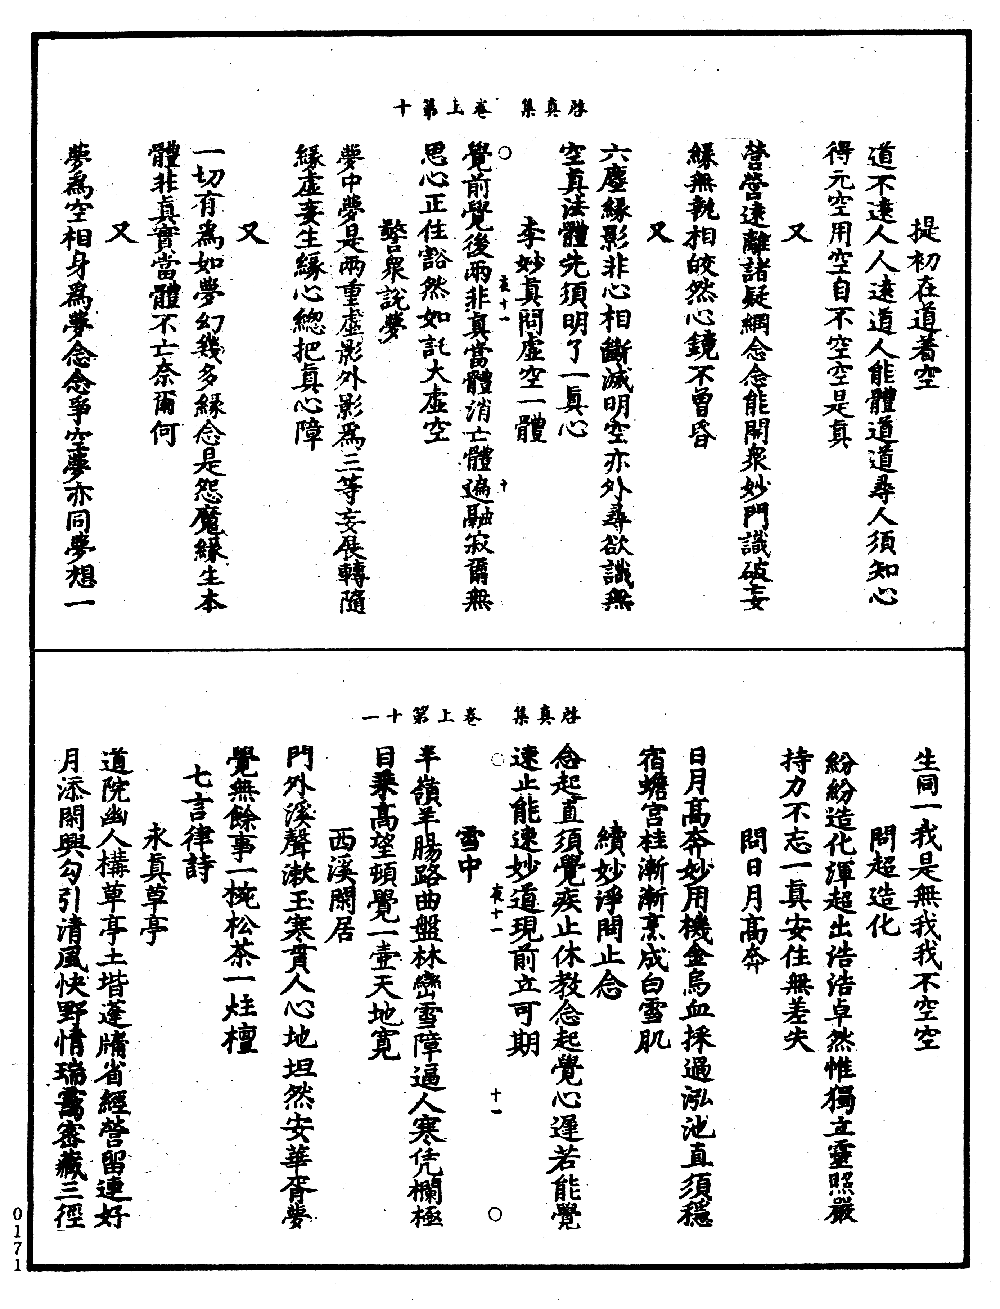 啓真集 卷上第十
提初在道着空
道不遠人人遠道人能體道道尋人須知心
得元空用空自不空空是真
又
營營遠離諸疑網念念能開衆妙門識破妄
緣無執相皎然心鏡不曾昏
又
六塵緣影非心相斷滅明空亦外尋欲識無
空真法體先須明了一真心
李妙真問虛空一體
覺前覺後兩非真當體消亡體遍融寂爾無
思心正住豁然如託大虛空
警衆說夢
夢中夢是兩重虛影外影爲三等妄展轉隨
緣虛妄生緣心總把真心障
又
一切有爲如夢幻幾多緣念是怨魔緣生本
體非真實當體不亡奈爾何
又
夢爲空相身爲夢念念爭空夢亦同夢想一
十
啓真集 卷上第十一
生同一我是無我我不空空
問超造化
紛紛造化渾超出浩浩卓然惟獨立靈照嚴
持力不忘一真安住無差失
問日月高奔
日月高奔妙用機金烏血採過泓池直須穩
宿蟾宮桂漸漸烹成白雪肌
續妙淨問止念
念起直須覺疾止休教念起覺心遲若能覺
速止能速妙道現前立可期
十一
雪中
半嶺羊腸路曲盤林巒雪障逼人寒凭欄極
目乘高望頓覺一壺天地寬
西溪閑居
門外溪聲漱玉寒貫人心地坦然安華胥夢
覺無餘事一椀松茶一炷檀
七言律詩
永真草亭
道院幽人構草亭土堦蓬牖省經營留連好
月添閑興勾引清風快野情瑞靄密藏三徑
0171